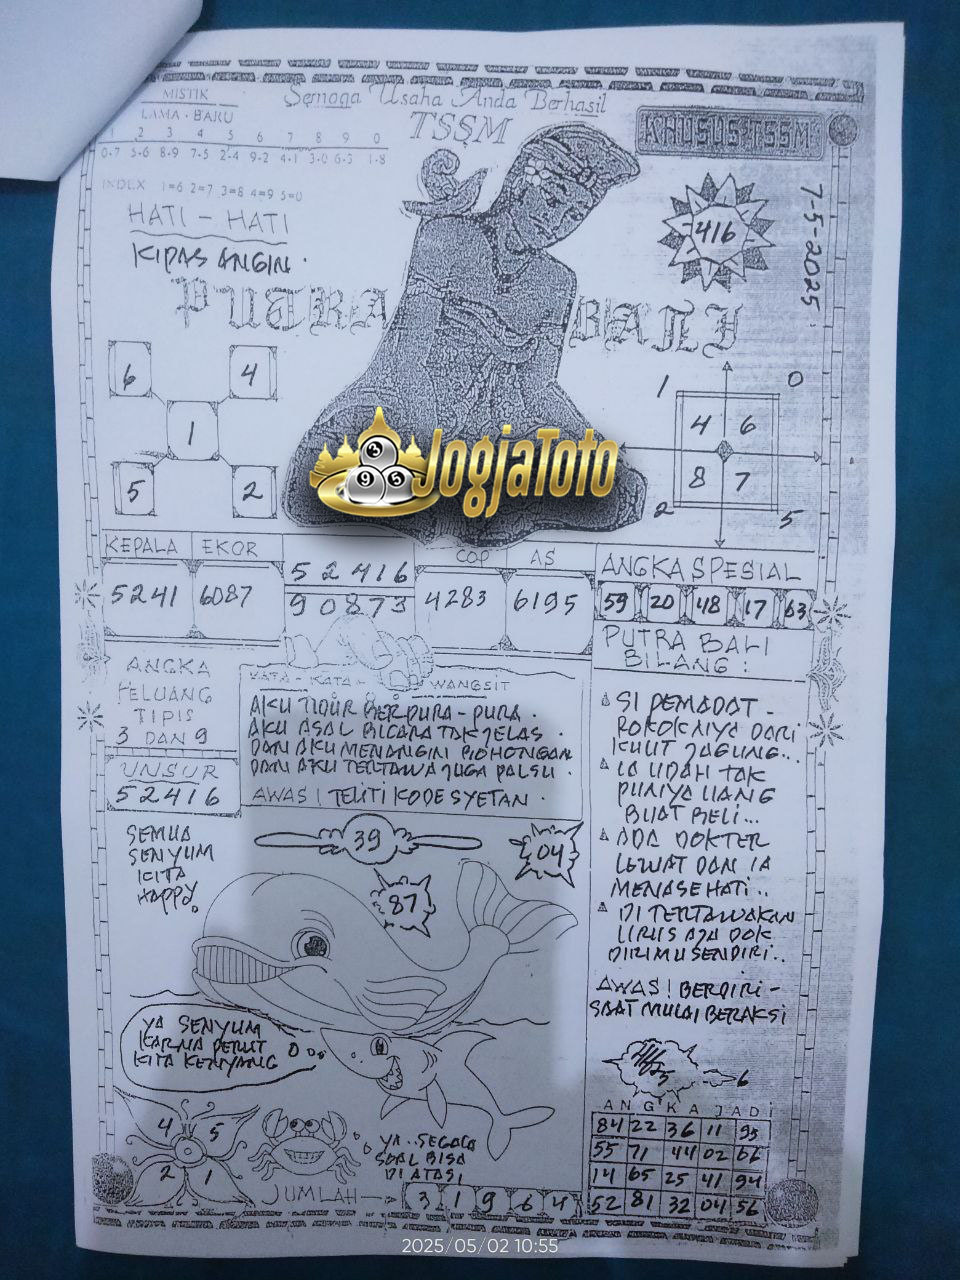 MISTIK
LAMA - BARU
1 2 3 4 5 6 7 8 9 0
0-7 5-6 8-9 7-5 2-4 9-2 4-1 3-0 6-3 1-8
INDEX 1=6 2=7 3=8 4=9 5=0
Semoga Usaha Anda Berhasil
TSSM
KHUSUS TSSM
7-5-2025
416
HATI - HATI
KIPAS ANGIN.
PUTRA BALI
6 4
1
5 2
1 0
4 6
8 7
2 5
KEPALA EKOR
5241 6087
52416
90873
COP AS
4283 6195
ANGKA SPESIAL
59 20 48 17 63
ANGKA
PELUANG
TIPIS
3 DAN 9
UNSUR
52416
KATA - KATA - WANGSIT
AKU TIDUR BERPURA - PURA.
AKU ASAL BICARA TAK JELAS.
DAN AKU MENANGINI BOHONGAN
DAN AKU TERTAWA JUGA PALSU.
AWAS! TELITI KODE SYETAN.
PUTRA BALI
BILANG:
SI PEMADAT -
ROKOKNIYA DARI
KULIT JAGUNG...
IA UDAH TAK
PUNIYA UANG
BUAT BELI...
ADA DOKTER
LEWAT DAN IA
MENASEHATI..
DI TERTAWAKAN
URUS AJA DOK
DIRIMU SENDIRI..
AWAS! BERDIRI -
SAAT MULAI BERAKSI
SEMUA
SENYUM
KITA
HAPPY.
39
04
87
YA SENYUM
KARNA PERUT
KITA KENYANG
4 5
2 1
YA.. SEGALA
SOAL BISA
DI ATASI
JUMLAH
3 1 9 6 4
6
ANGKA JADI
84 22 36 11 95
55 71 44 02 66
14 65 25 41 94
52 81 32 04 56
JogjaToto
3 9 5
2025/05/02 10:55